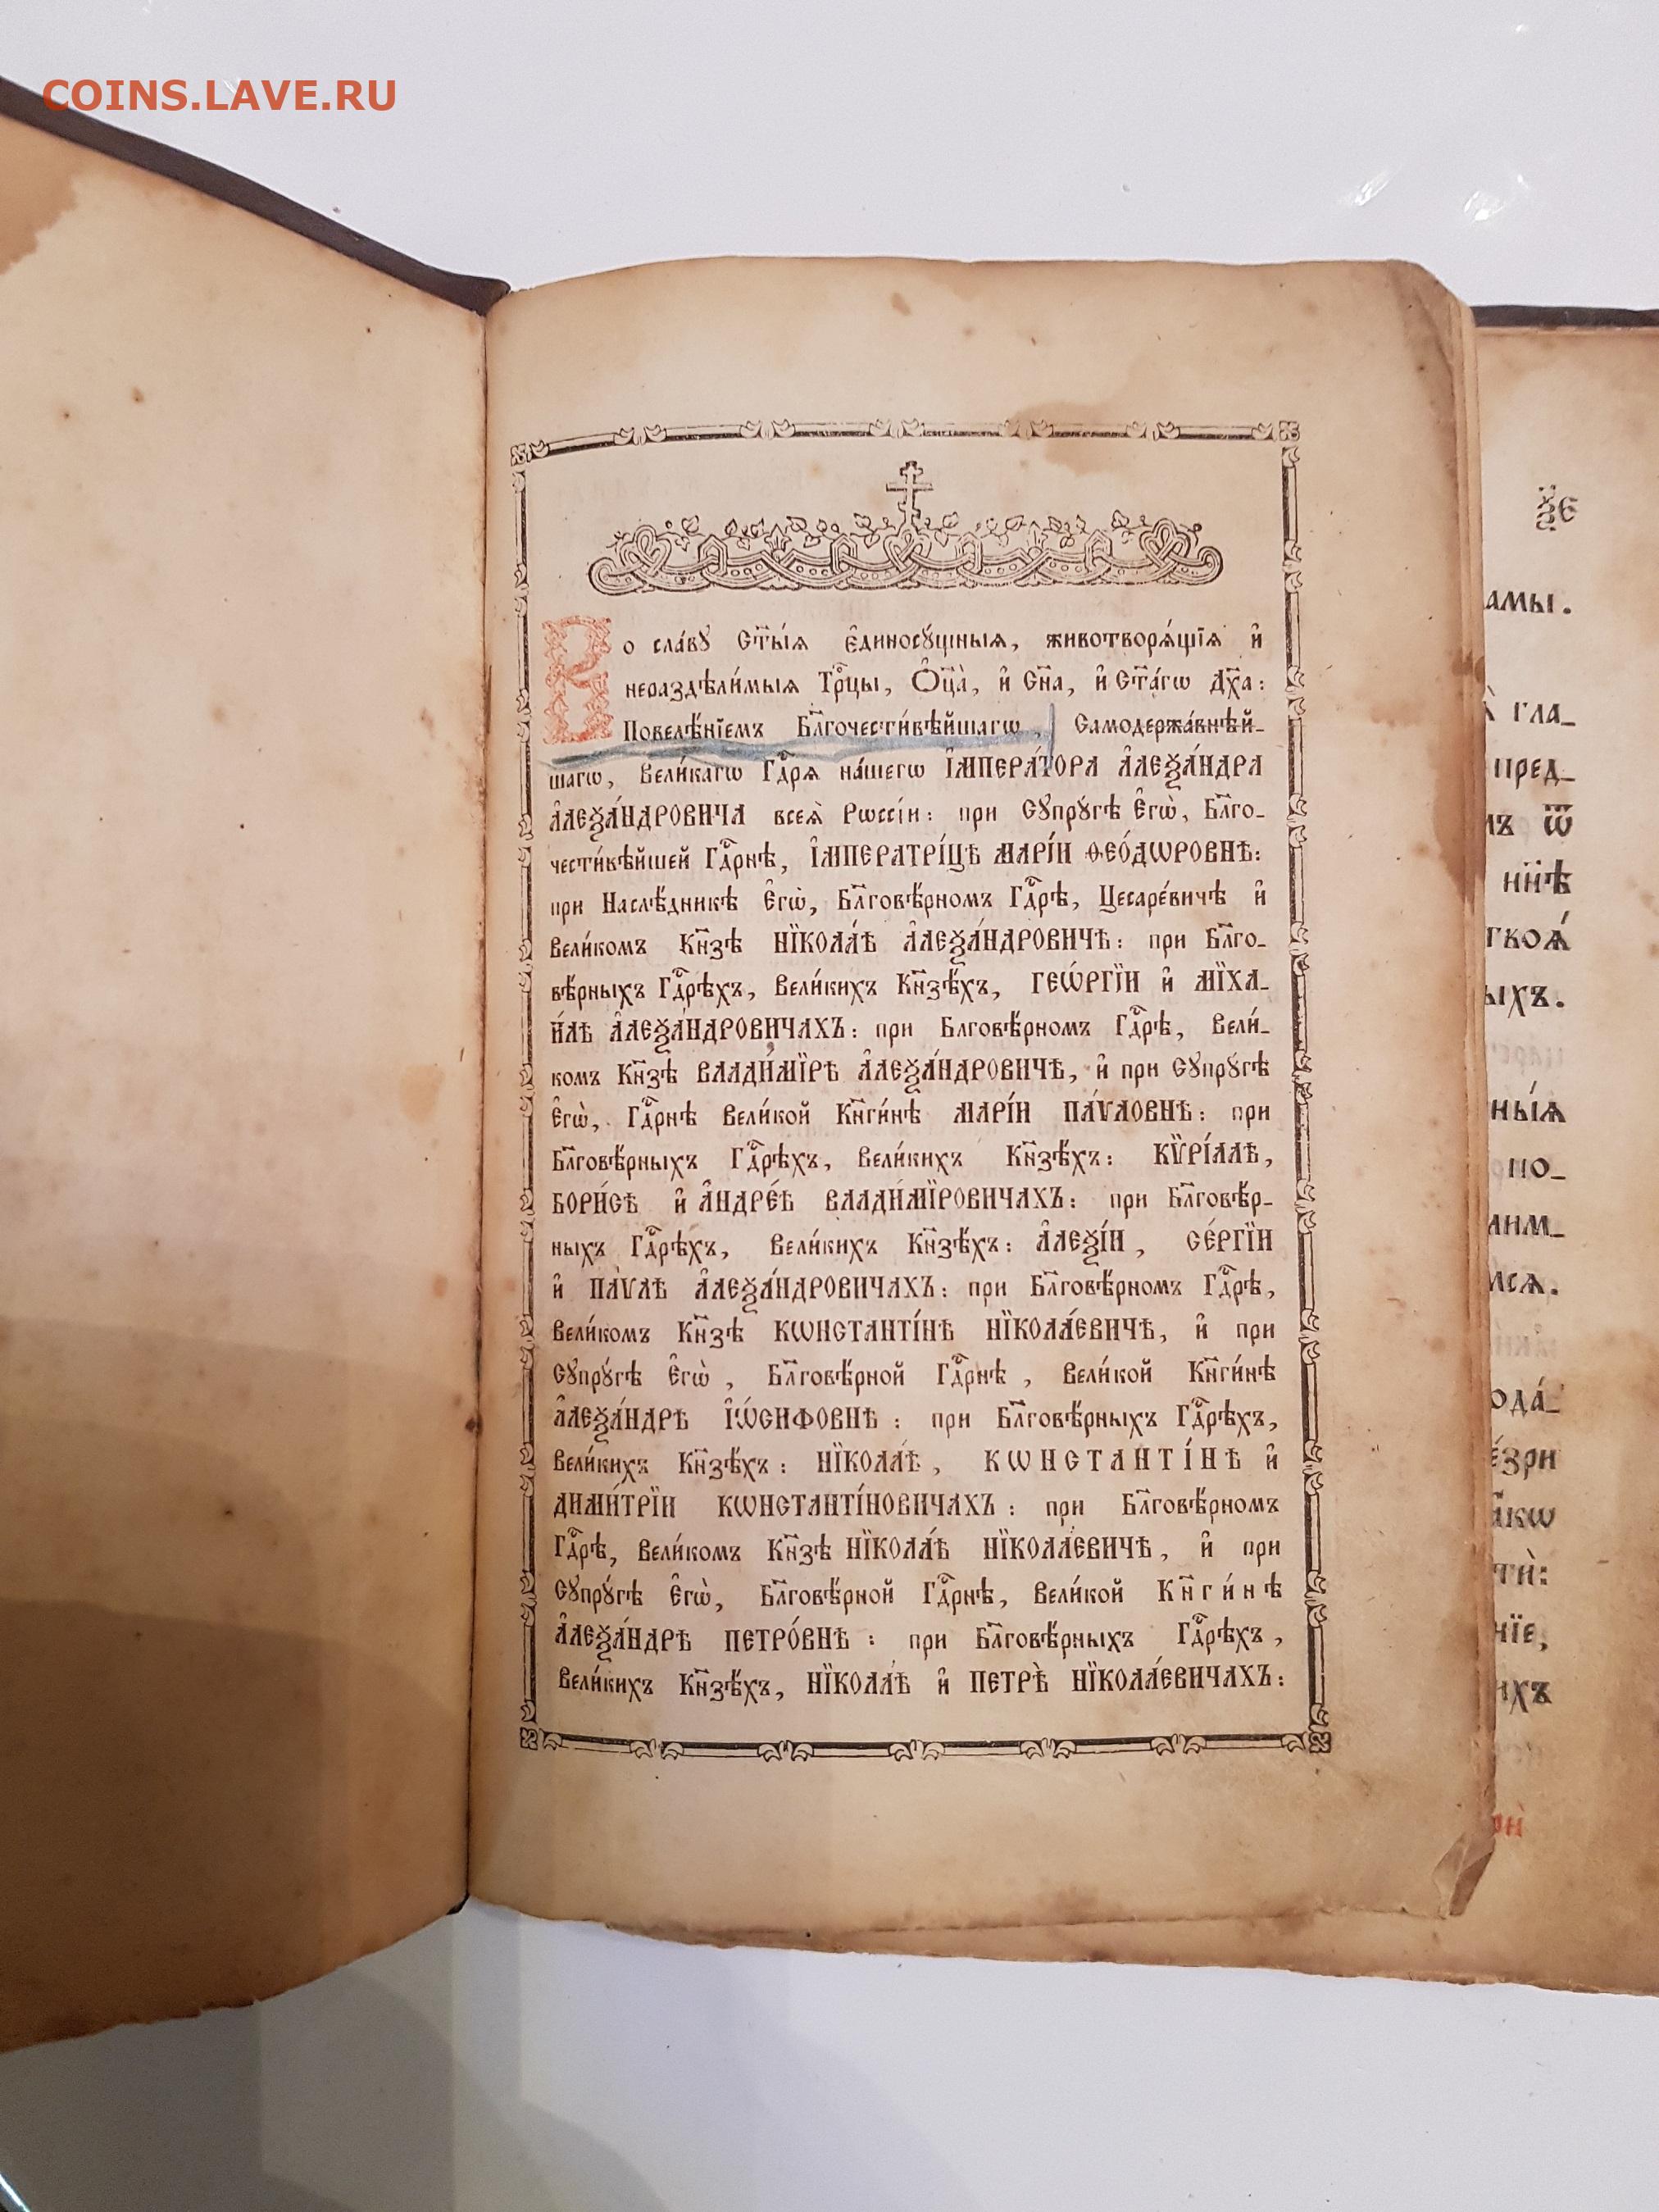 COINS.LAVE.RU
Во сла́вꙋ Ст҃ы́ѧ Є҆диносꙋ́щныѧ, животворѧ́щїѧ и҆
нераздѣли́мыѧ Трⷪ҇цы, Ѻ҆ц҃а̀, и҆ Сн҃а, и҆ Ст҃а́гѡ Дх҃а:
Повелѣ́нїемъ Бл҃гочести́вѣйшагѡ, Самодержа́внѣй-
шагѡ, Вели́кагѡ Гдⷭ҇рѧ на́шегѡ І҆МПЕРА́ТОРА А҆ЛЕѮА́НДРА
А҆ЛЕѮА́НДРОВИЧА всеѧ̀ Рѡссі́и: при Сꙋпрꙋ́гѣ Є҆гѡ̀, Бл҃го-
чести́вѣйшей Гдⷭ҇рнѣ, І҆МПЕРАТРІ́ЦѢ МАРІ́И ѲЕО́ДѠРОВНѢ:
при Наслѣ́дникѣ Є҆гѡ̀, Бл҃говѣ́рномъ Гдⷭ҇рѣ, Цесаре́вичѣ и҆
Вели́комъ Кн҃зѣ НЇКОЛА́Ѣ А҆ЛЕѮА́НДРОВИЧѢ: при Бл҃го-
вѣ́рныхъ Гдⷭ҇рѣхъ, Вели́кихъ Кн҃зѣ́хъ, ГЕѠ́РГЇИ и҆ МЇХА-
И́ЛѢ А҆ЛЕѮА́НДРОВИЧАХЪ: при Бл҃говѣ́рномъ Гдⷭ҇рѣ, Вели́-
комъ Кн҃зѣ ВЛАДИ́МЇРѢ А҆ЛЕѮА́НДРОВИЧѢ, и҆ при Сꙋпрꙋ́гѣ
Є҆гѡ̀, Гдⷭ҇рнѣ Вели́кой Кн҃ги́нѣ МАРІ́И ПА́ѴЛОВНѢ: при
Бл҃говѣ́рныхъ Гдⷭ҇рѣхъ, Вели́кихъ Кн҃зѣ́хъ: КѴ̈РІ́ЛЛѢ,
БОРИ́СѢ и҆ А҆НДРЕ́Ѣ ВЛАДИ́МЇРОВИЧАХЪ: при Бл҃говѣ́р-
ныхъ Гдⷭ҇рѣхъ, Вели́кихъ Кн҃зѣ́хъ: А҆ЛЕѮІ́И, СЕ́РГЇИ
и҆ ПА́ѴЛѢ А҆ЛЕѮА́НДРОВИЧАХЪ: при Бл҃говѣ́рномъ Гдⷭ҇рѣ,
Вели́комъ Кн҃зѣ КѠНСТАНТІ́НѢ НЇКОЛА́ЕВИЧѢ, и҆ при
Сꙋпрꙋ́гѣ Є҆гѡ̀, Бл҃говѣ́рной Гдⷭ҇рнѣ, Вели́кой Кн҃ги́нѣ
А҆ЛЕѮА́НДРѢ І҆Ѡ́СИФОВНѢ: при Бл҃говѣ́рныхъ Гдⷭ҇рѣхъ,
Вели́кихъ Кн҃зѣ́хъ: НЇКОЛА́Ѣ, КѠНСТАНТІ́НѢ и҆
ДИМИ́ТРЇИ КѠНСТАНТІ́НОВИЧАХЪ: при Бл҃говѣ́рномъ
Гдⷭ҇рѣ, Вели́комъ Кн҃зѣ НЇКОЛА́Ѣ НЇКОЛА́ЕВИЧѢ, и҆ при
Сꙋпрꙋ́гѣ Є҆гѡ̀, Бл҃говѣ́рной Гдⷭ҇рнѣ, Вели́кой Кн҃ги́нѣ
А҆ЛЕѮА́НДРѢ ПЕТРО́ВНѢ: при Бл҃говѣ́рныхъ Гдⷭ҇рѣхъ,
Вели́кихъ Кн҃зѣ́хъ, НЇКОЛА́Ѣ и҆ ПЕТРѢ̀ НЇКОЛА́ЕВИЧАХЪ:
ѯ҃є
амы.
гла-
пред-
ѿ
нн҃ѣ
твоѧ́
ыхъ.
ны́ѧ
по-
мсѧ.
ода́-
е́зри
ѧкѡ
тѝ:
нїе,
ихъ